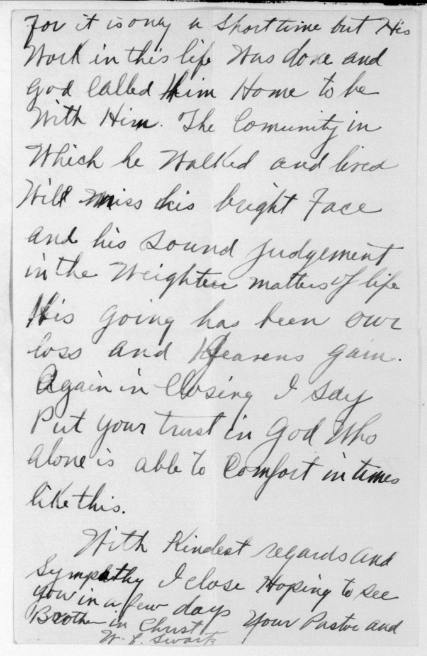 for it is only a Short time but His
Work in this life Was done and
God Called Him Home to be
With Him. The Comunity in
Which he Walked and lived
Will miss his bright Face
and his Sound Judgement
in the Weightier matters of life
His going has been our
loss and Heavens gain.
Again in Closing I say
Put your trust in God Who
alone is able to Comfort in times
like this.
With Kindest regards and
Sympathy I close Hoping to see
you in a few days Your Pastor and
Brother in Christ
W. L. Swartz